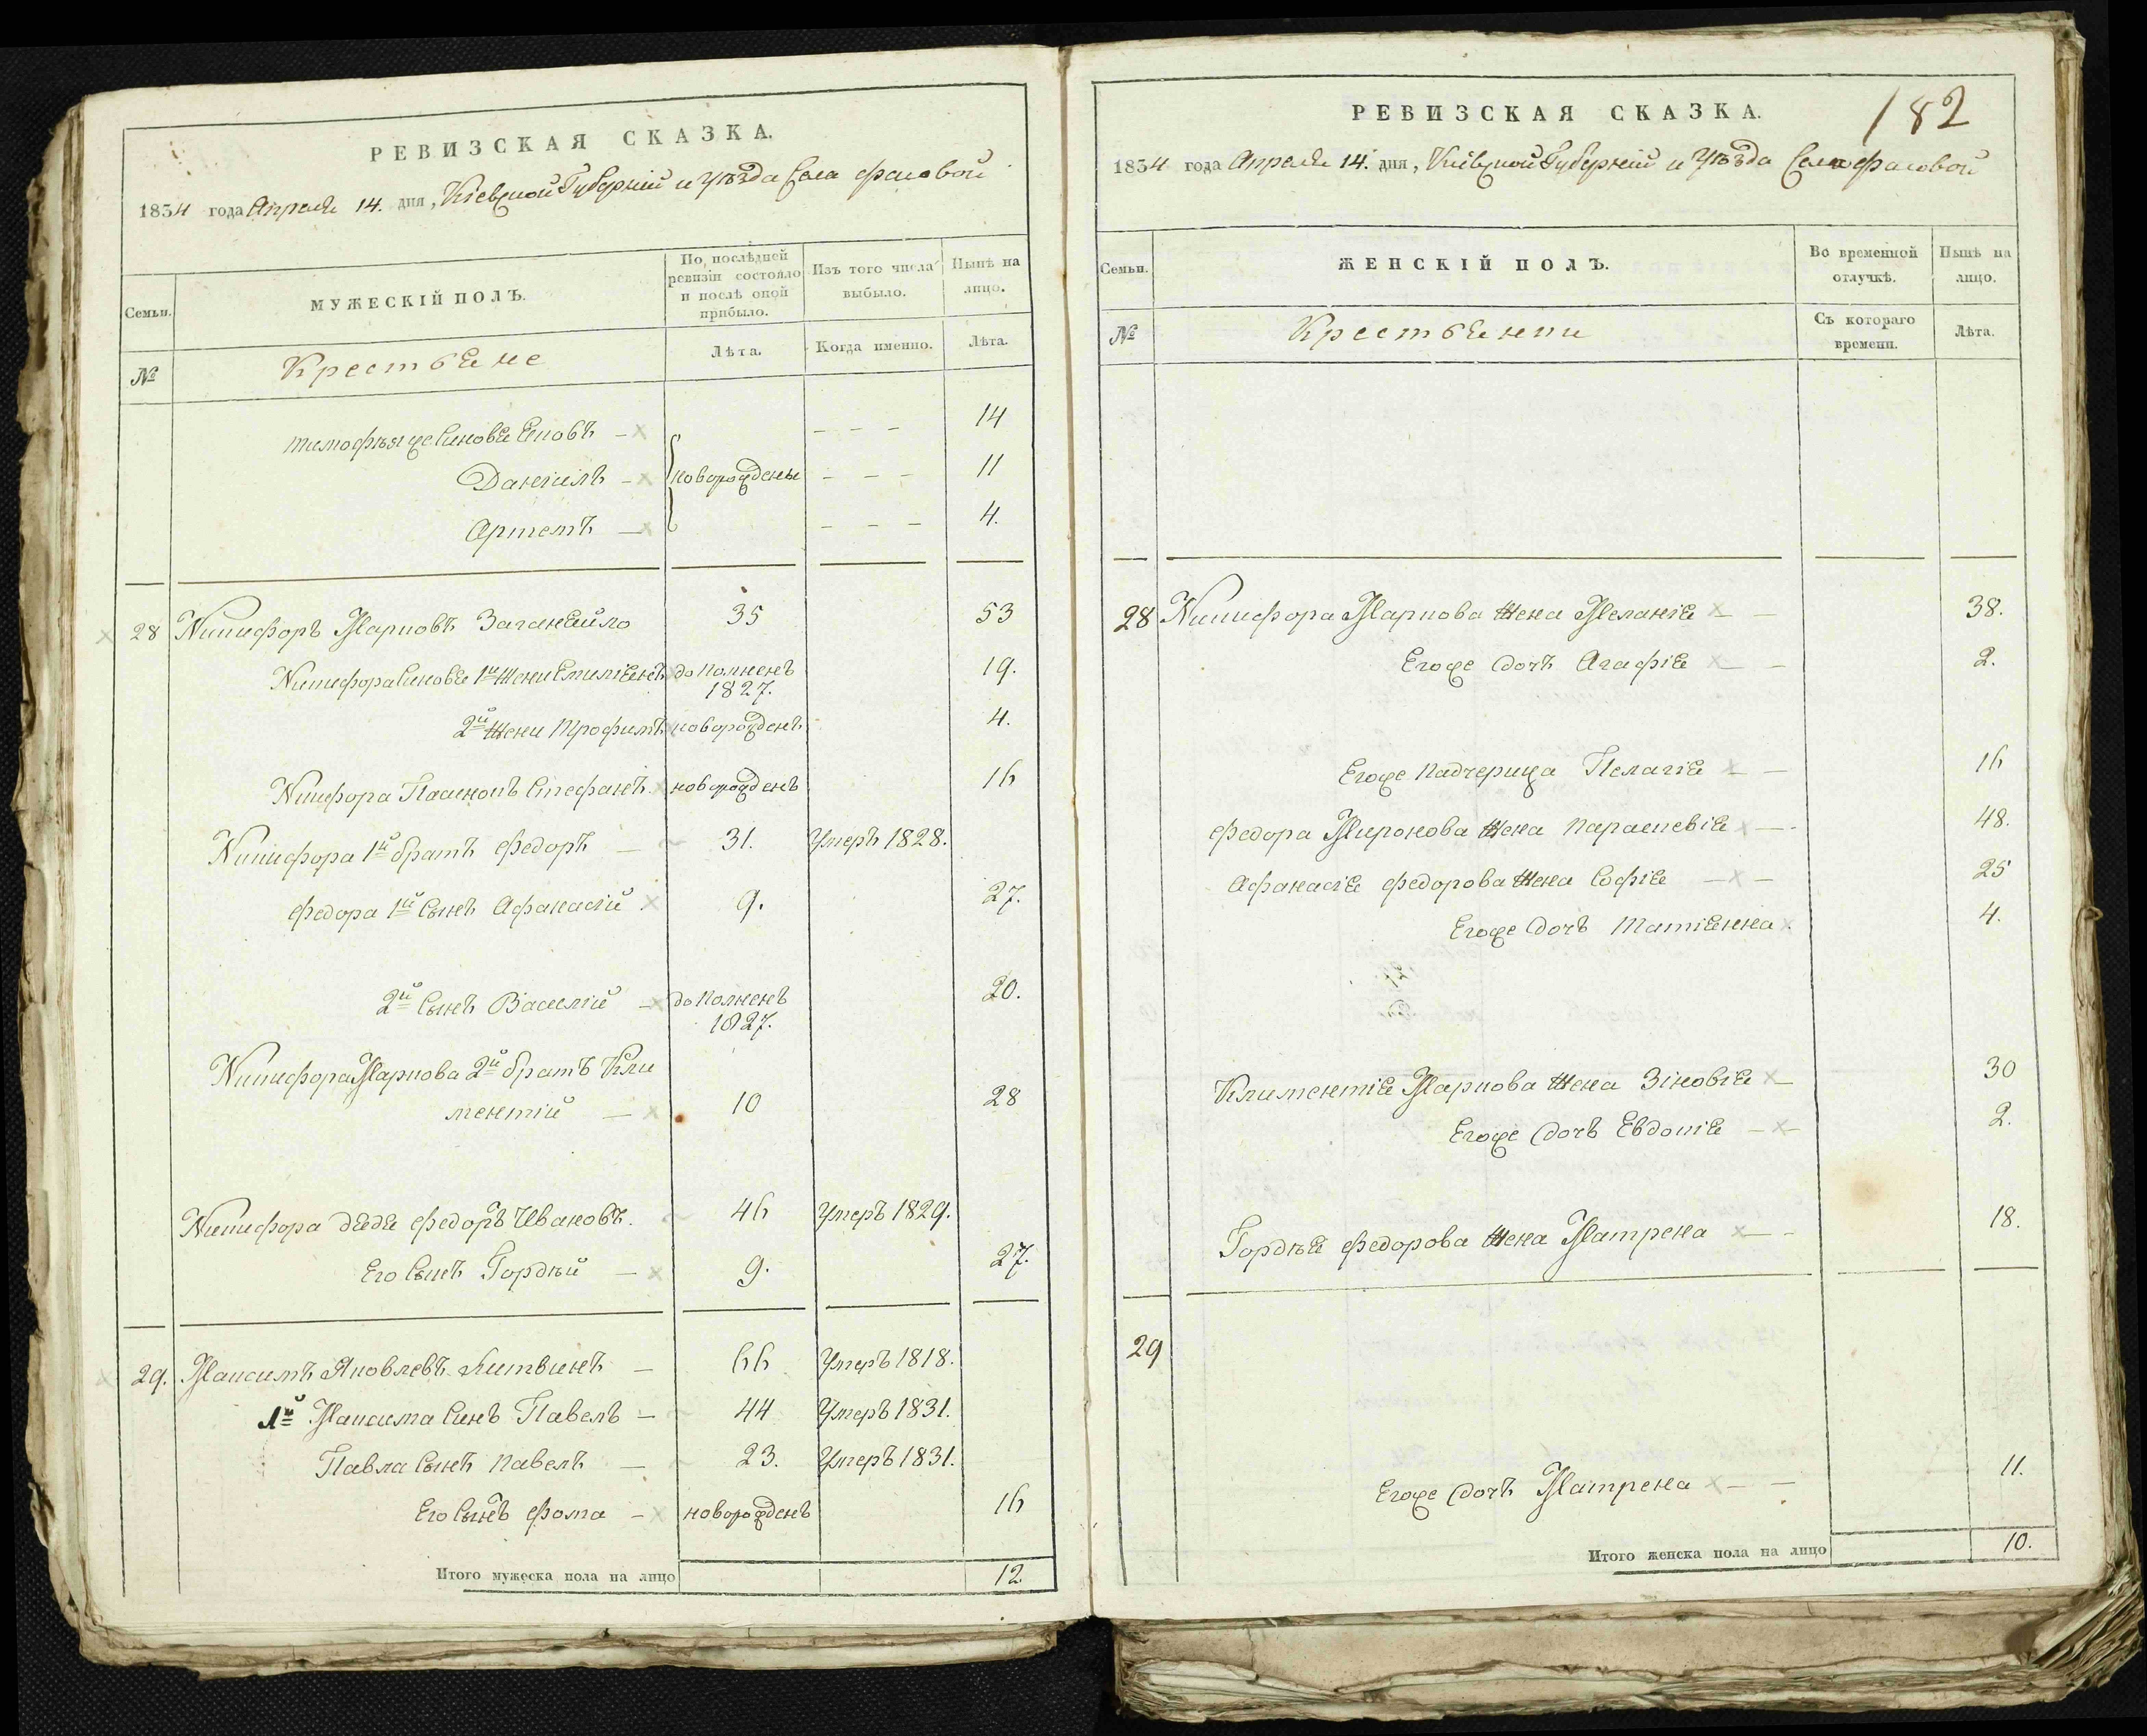 РЕВИЗСКАЯ СКАЗКА.
1834 года Апреля 14. дня, Кіевской Губерніи и уѣзда Села Фасовой
Семьи.
МУЖЕСКІЙ ПОЛЪ.
По послѣдней ревизіи состояло и послѣ оной прибыло.
Изъ того числа выбыло.
Нынѣ на лицо.
№
Крестьяне
Лѣта.
Когда именно.
Лѣта.
Тимофѣя же Синовя - 14
Даніилъ - новорожденны - - - 11
Артемъ - - - - 4.
28 Никифоръ Марковъ 35 53
Никифора Синовя 1й Жени Емиліянъ дополненъ 1827. 19.
2й Жени Трофимъ новорожденъ 4.
Никифора Пасинокъ Стефанъ новорожденъ 16
Никифора 1й братъ Федоръ - 31. Умеръ 1828.
Федора 1й Сынъ Афанасій 9. 27.
2й Сынъ Василій - дополненъ 1827. 20.
Никифора Маркова 2й братъ Кли
ментій - 10 28
Никифора дядя Федоръ Ивановъ. 46 Умеръ 1829.
Его Сынъ Гордѣй - 9. 27.
29. Максимъ Яковлевъ Литвинъ - 66 Умеръ 1818.
1й Максима Синъ Павелъ - 44 Умеръ 1831.
Павла Сынъ Павелъ - 23. Умеръ 1831.
Его Сынъ Фома - новорожденъ 16
Итого мужеска пола на лицо 12.
182
РЕВИЗСКАЯ СКАЗКА.
1834 года Апреля 14. дня, Кіевской Губерніи и уѣзда Села Фасовой
Семьи.
ЖЕНСКІЙ ПОЛЪ.
Во временной отлучкѣ.
Нынѣ на лицо.
№
Крестьянки
Съ котораго времени.
Лѣта.
28 Никифора Маркова Жена Меланія - 38.
Егоже Дочъ Агафія - 2.
Егоже Падчерица Пелагія - 16
Федора Миронова Жена Параскевія - 48.
Афанасія Федорова Жена Софія - 25
Егоже Дочъ Матіянна 4.
Климентія Маркова Жена Зіновія - 30
Егоже Дочъ Евдокія - 2.
Гордѣя Федорова Жена Матрена - 18.
29
Егоже Дочъ Матрена - 11.
Итого женска пола на лицо 10.